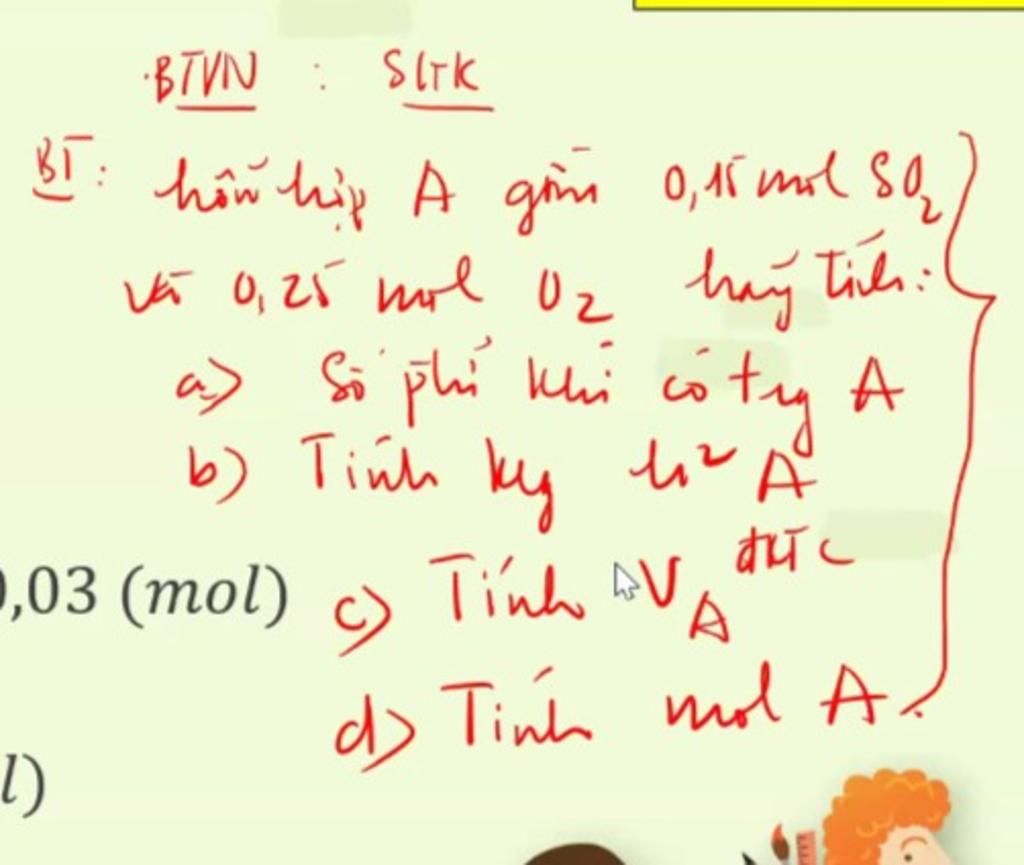 BTVN : SLTK
BT: hỗn hợp A gồm 0,15 mol SO₂
và 0,25 mol O₂ hãy tính:
a) Số ptử khí có trg A
b) Tính kg h² A
0,03 (mol)
c) Tính V_A đktc
d) Tính mol A.
l)